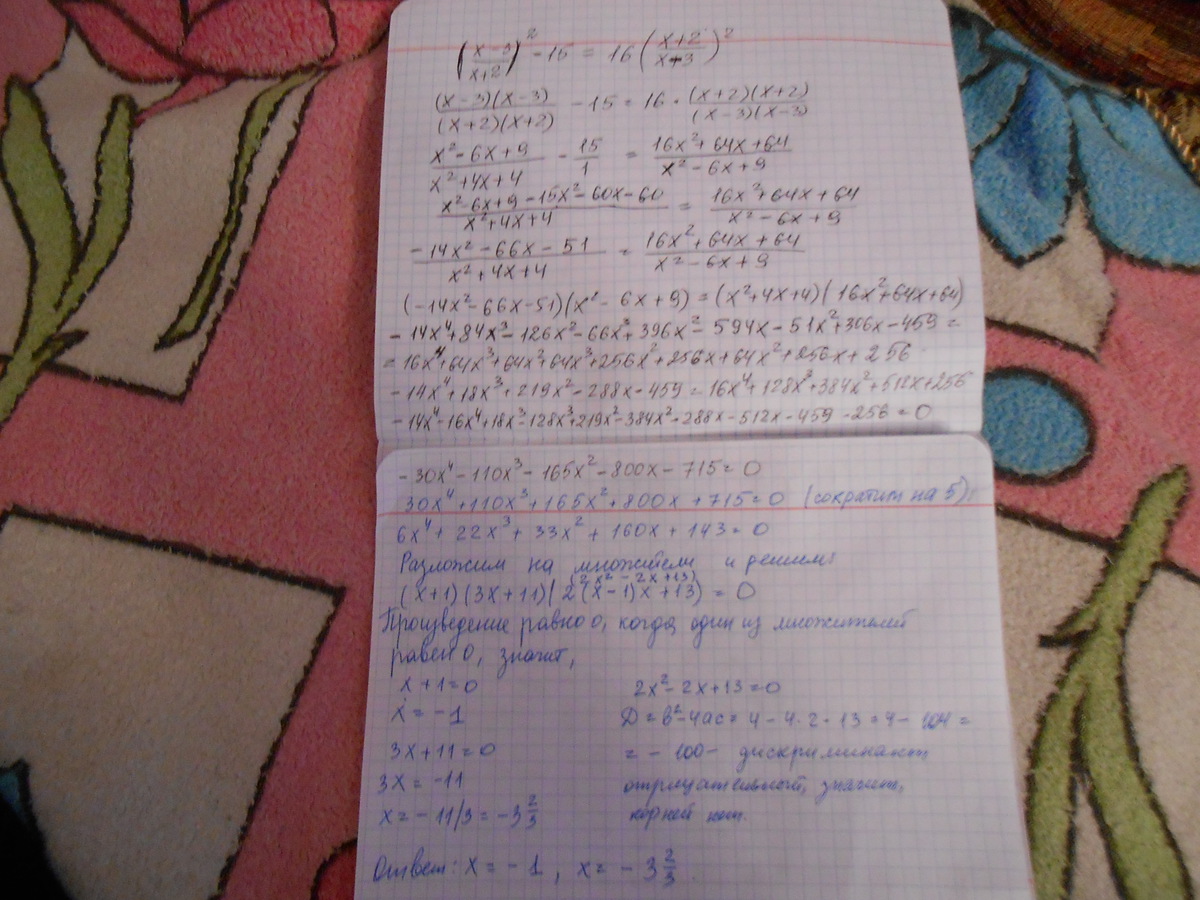 ((x-3)/(x+2))² - 15 = 16((x+2)/(x-3))²
(x-3)(x-3)/(x+2)(x+2) - 15 = 16 · (x+2)(x+2)/(x-3)(x-3)
(x²-6x+9)/(x²+4x+4) - 15/1 = (16x²+64x+64)/(x²-6x+9)
(x²-6x+9-15x²-60x-60)/(x²+4x+4) = (16x²+64x+64)/(x²-6x+9)
(-14x²-66x-51)/(x²+4x+4) = (16x²+64x+64)/(x²-6x+9)
(-14x²-66x-51)(x²-6x+9) = (x²+4x+4)(16x²+64x+64)
-14x⁴+84x³-126x²-66x³+396x²-594x-51x²+306x-459=
=16x⁴+64x³+64x²+64x³+256x²+256x+64x²+256x+256
-14x⁴+18x³+219x²-288x-459=16x⁴+128x³+384x²+512x+256
-14x⁴-16x⁴+18x³-128x³+219x²-384x²-288x-512x-459-256=0
-30x⁴-110x³-165x²-800x-715=0
30x⁴+110x³+165x²+800x+715=0 (сократим на 5)
6x⁴+22x³+33x²+160x+143=0
Разложим на множители и решим:
(2x²-2x+13)
(x+1)(3x+11)(2(x-1)x+13)=0
Произведение равно 0, когда один из множителей
равен 0, значит,
x+1=0 2x²-2x+13=0
x=-1 Д=в²-4ас=4-4·2·13=4-104=
3x+11=0 =-100- дискриминант
3x=-11 отрицательный, значит,
x=-11/3=-3 2/3 корней нет.
Ответ: x=-1, x=-3 2/3.